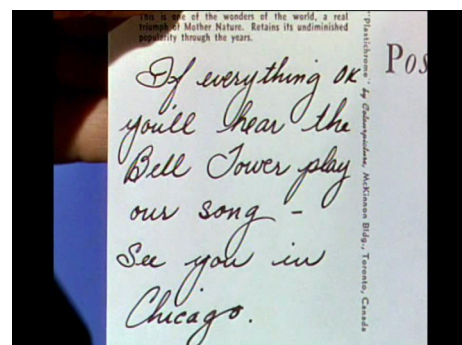 This is one of the wonders of the world, a real
triumph of Mother Nature. Retains its undiminished
popularity through the years.
If everything OK
you'll hear the
Bell Tower play
our song -
See you in
Chicago.
"Plastichrome" by Colourpicture, McKinnon Bldg., Toronto, Canada
Pos